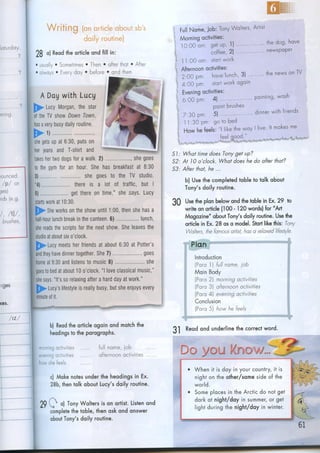 Writing (an article about sb's
daily routine)
28 a) Read the article and fill in:
• usually • Sometimes • Then • after that • After
• always • Every day • before • and then
A Day with Lucy
Lucy Morgan, the star
of the TV show Down Town,
has a very busy daily routine.
1)
she gets up at 6:30, puts on
her jeans and T-shirt and
takes her two dogs for a walk. 2) she goes
to the gym for an hour. She has breakfast at 8:30
3) she goes to the TV studio.
4) there is a lot of traffic, but I
5) get there on time," she says. Lucy
starts work at 10:30.
She works on the show until 1:00, then she has a
half-hour lunch break in the canteen. 6) lunch,
she reads the scripts for the next show. She leaves the
studio at about six o'clock.
Lucy meets her friends at about 6:30 at Potter's
and they have dinner together. She 7) goes
home at 9:30 and listens to music 8) she
goes to bed at about 10 o'clock. "I love classical music,"
she says. "It's so relaxing after a hard day at work."
Lucy's lifestyle is really busy, but she enjoys every
minute of it.
b) Read the article again and match the
headings to the paragraphs.
morning activities full name, job
evening activities afternoon activities
how she feels
c) Make notes under the headings in Ex.
28b, then talk about Lucy's daily routine.
29 a) Tony Walters is an artist. Listen and
complete the table, then ask and answer
about Tony's daily routine.
6
Full Name, Job: Tony Walters, Artist
Morning activities:
10:00 am: get up, 1) the dog, have
coffee, 2) newspaper
11:00 am: start work
Afternoon activities:
2:00 pm: have lunch, 3) the news on TV
4:00 pm: start work again
Evening activities:
6:00 pm: 4) painting, wash
paint brushes
7:30 pm: 5) dinner with friends
11:30 pm: go to bed
How he feels: "I like the way I live. It makes me
feel good."
S1: What time does Tony get up?
S2: At 10 o'clock. What does he do after that?
S3: After that, he ...
b) Use the completed table to talk about
Tony's daily routine.
30 Use the plan below and the table in Ex. 29 to
write an article (100 - 120 words) for "Art
Magazine" about Tony's daily routine. Use the
article in Ex. 28 as a model. Start like this: Tony
Walters, the famous artist, has a relaxed lifestyle.
Plan
Introduction
(Para 1) full name, job
Main Body
(Para 2) morning activities
(Para 3) afternoon activities
(Para 4) evening activities
Conclusion
(Para 5) how he feels
31 Read and underline the correct word.
Do you Know...
• When it is day in your country, it is
night on the other/same side of the
world.
• Some places in the Arctic do not get
dark at night/day in summer, or get
light during the night/day in winter.
61